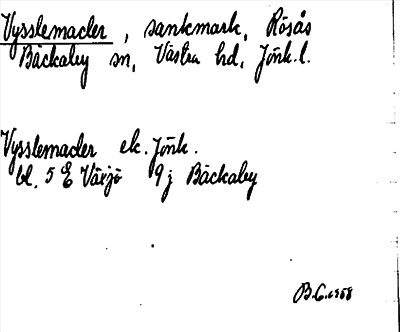 Vysslemader, sankmark, Rösås
Bäckaby sn, Västra hd, Jönk. l.
Vysslemader ek. Jönk.
bl. 5 E Växjö 9j Bäckaby
B.G. 1958